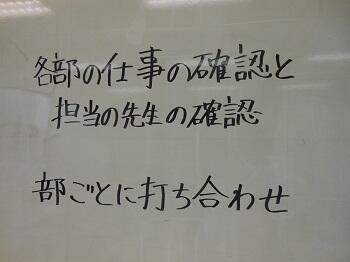 各部の仕事の確認と
担当の先生の確認
部ごとに打ち合わせ